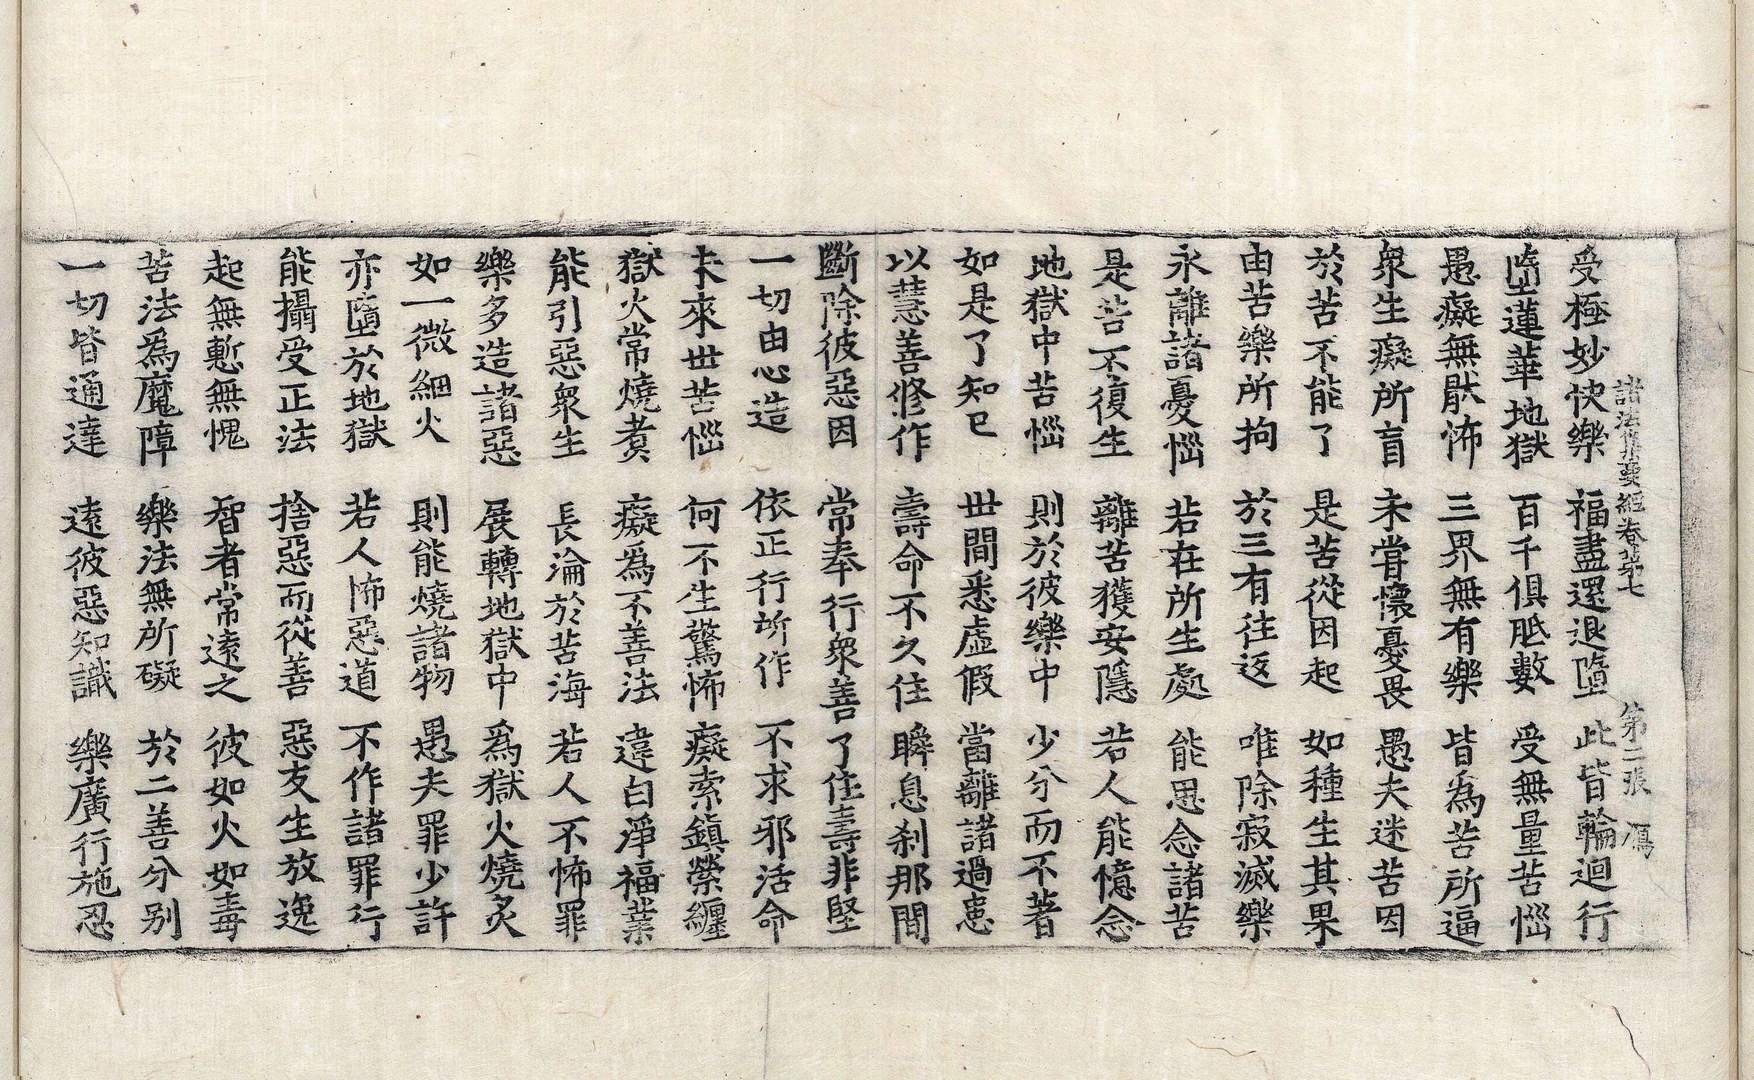 諸法集要經卷第七　第二張　鴈
受極妙快樂　福盡還退墮　此皆輪迴行
墮蓮華地獄　百千俱胝數　受無量苦惱
愚癡無猒怖　三界無有樂　皆爲苦所逼
衆生癡所盲　未甞懷憂畏　愚夫迷苦因
於苦不能了　是苦從因起　如種生其果
由苦樂所拘　於三有往返　唯除寂滅樂
永離諸憂惱　若在所生處　能思念諸苦
是苦不復生　離苦獲安隱　若人能憶念
地獄中苦惱　則於彼樂中　少分而不著
如是了知已　世間悉虛假　當離諸過患
以慧善修作　壽命不久住　瞬息刹那間
斷除彼惡因　常奉行衆善　了住壽非堅
一切由心造　依正行所作　不求邪活命
未來世苦惱　何不生驚怖　癡索鎮縈纏
獄火常燒煑　癡爲不善法　違白淨福業
能引惡衆生　長淪於苦海　若人不怖罪
樂多造諸惡　展轉地獄中　爲獄火燒炙
如一微細火　則能燒諸物　愚夫罪少許
亦墮於地獄　若人怖惡道　不作諸罪行
能攝受正法　捨惡而從善　惡友生放逸
起無慙無愧　智者常遠之　彼如火如毒
苦法爲魔障　樂法無所礙　於二善分別
一切皆通達　遠彼惡知識　樂廣行施忍